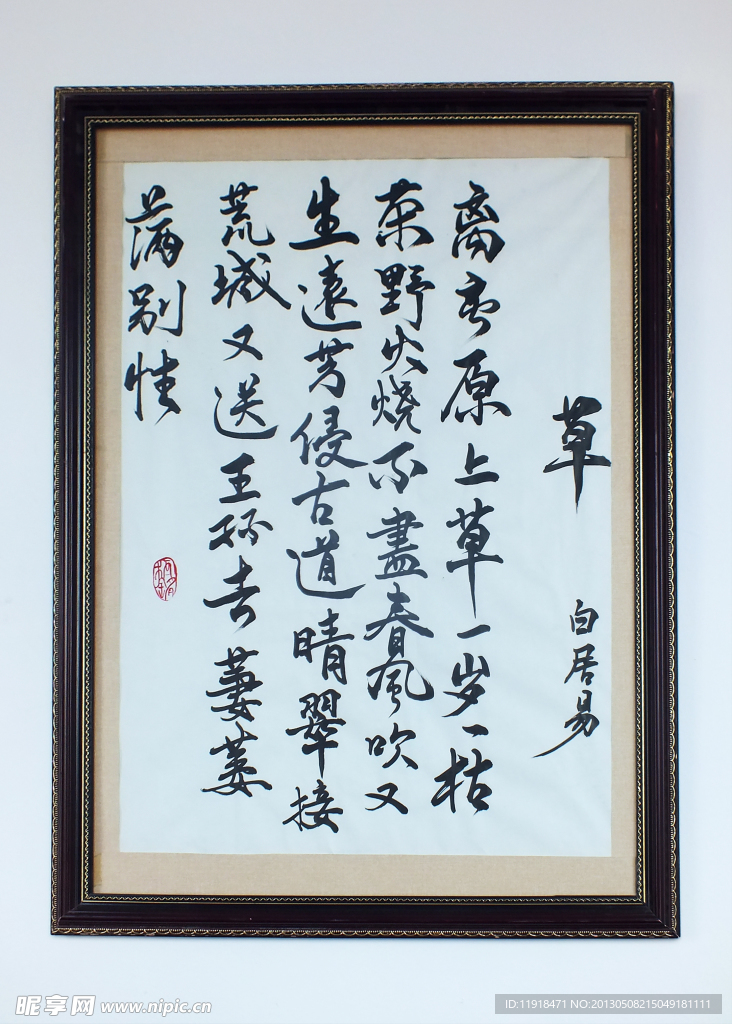 草
白居易
离离原上草一岁一枯
荣野火烧不盡春風吹又
生遠芳侵古道晴翠接
荒城又送王孙去萋萋
满别情
昵享网 www.nipic.cn
ID:11918471 NO:20130508215049181111